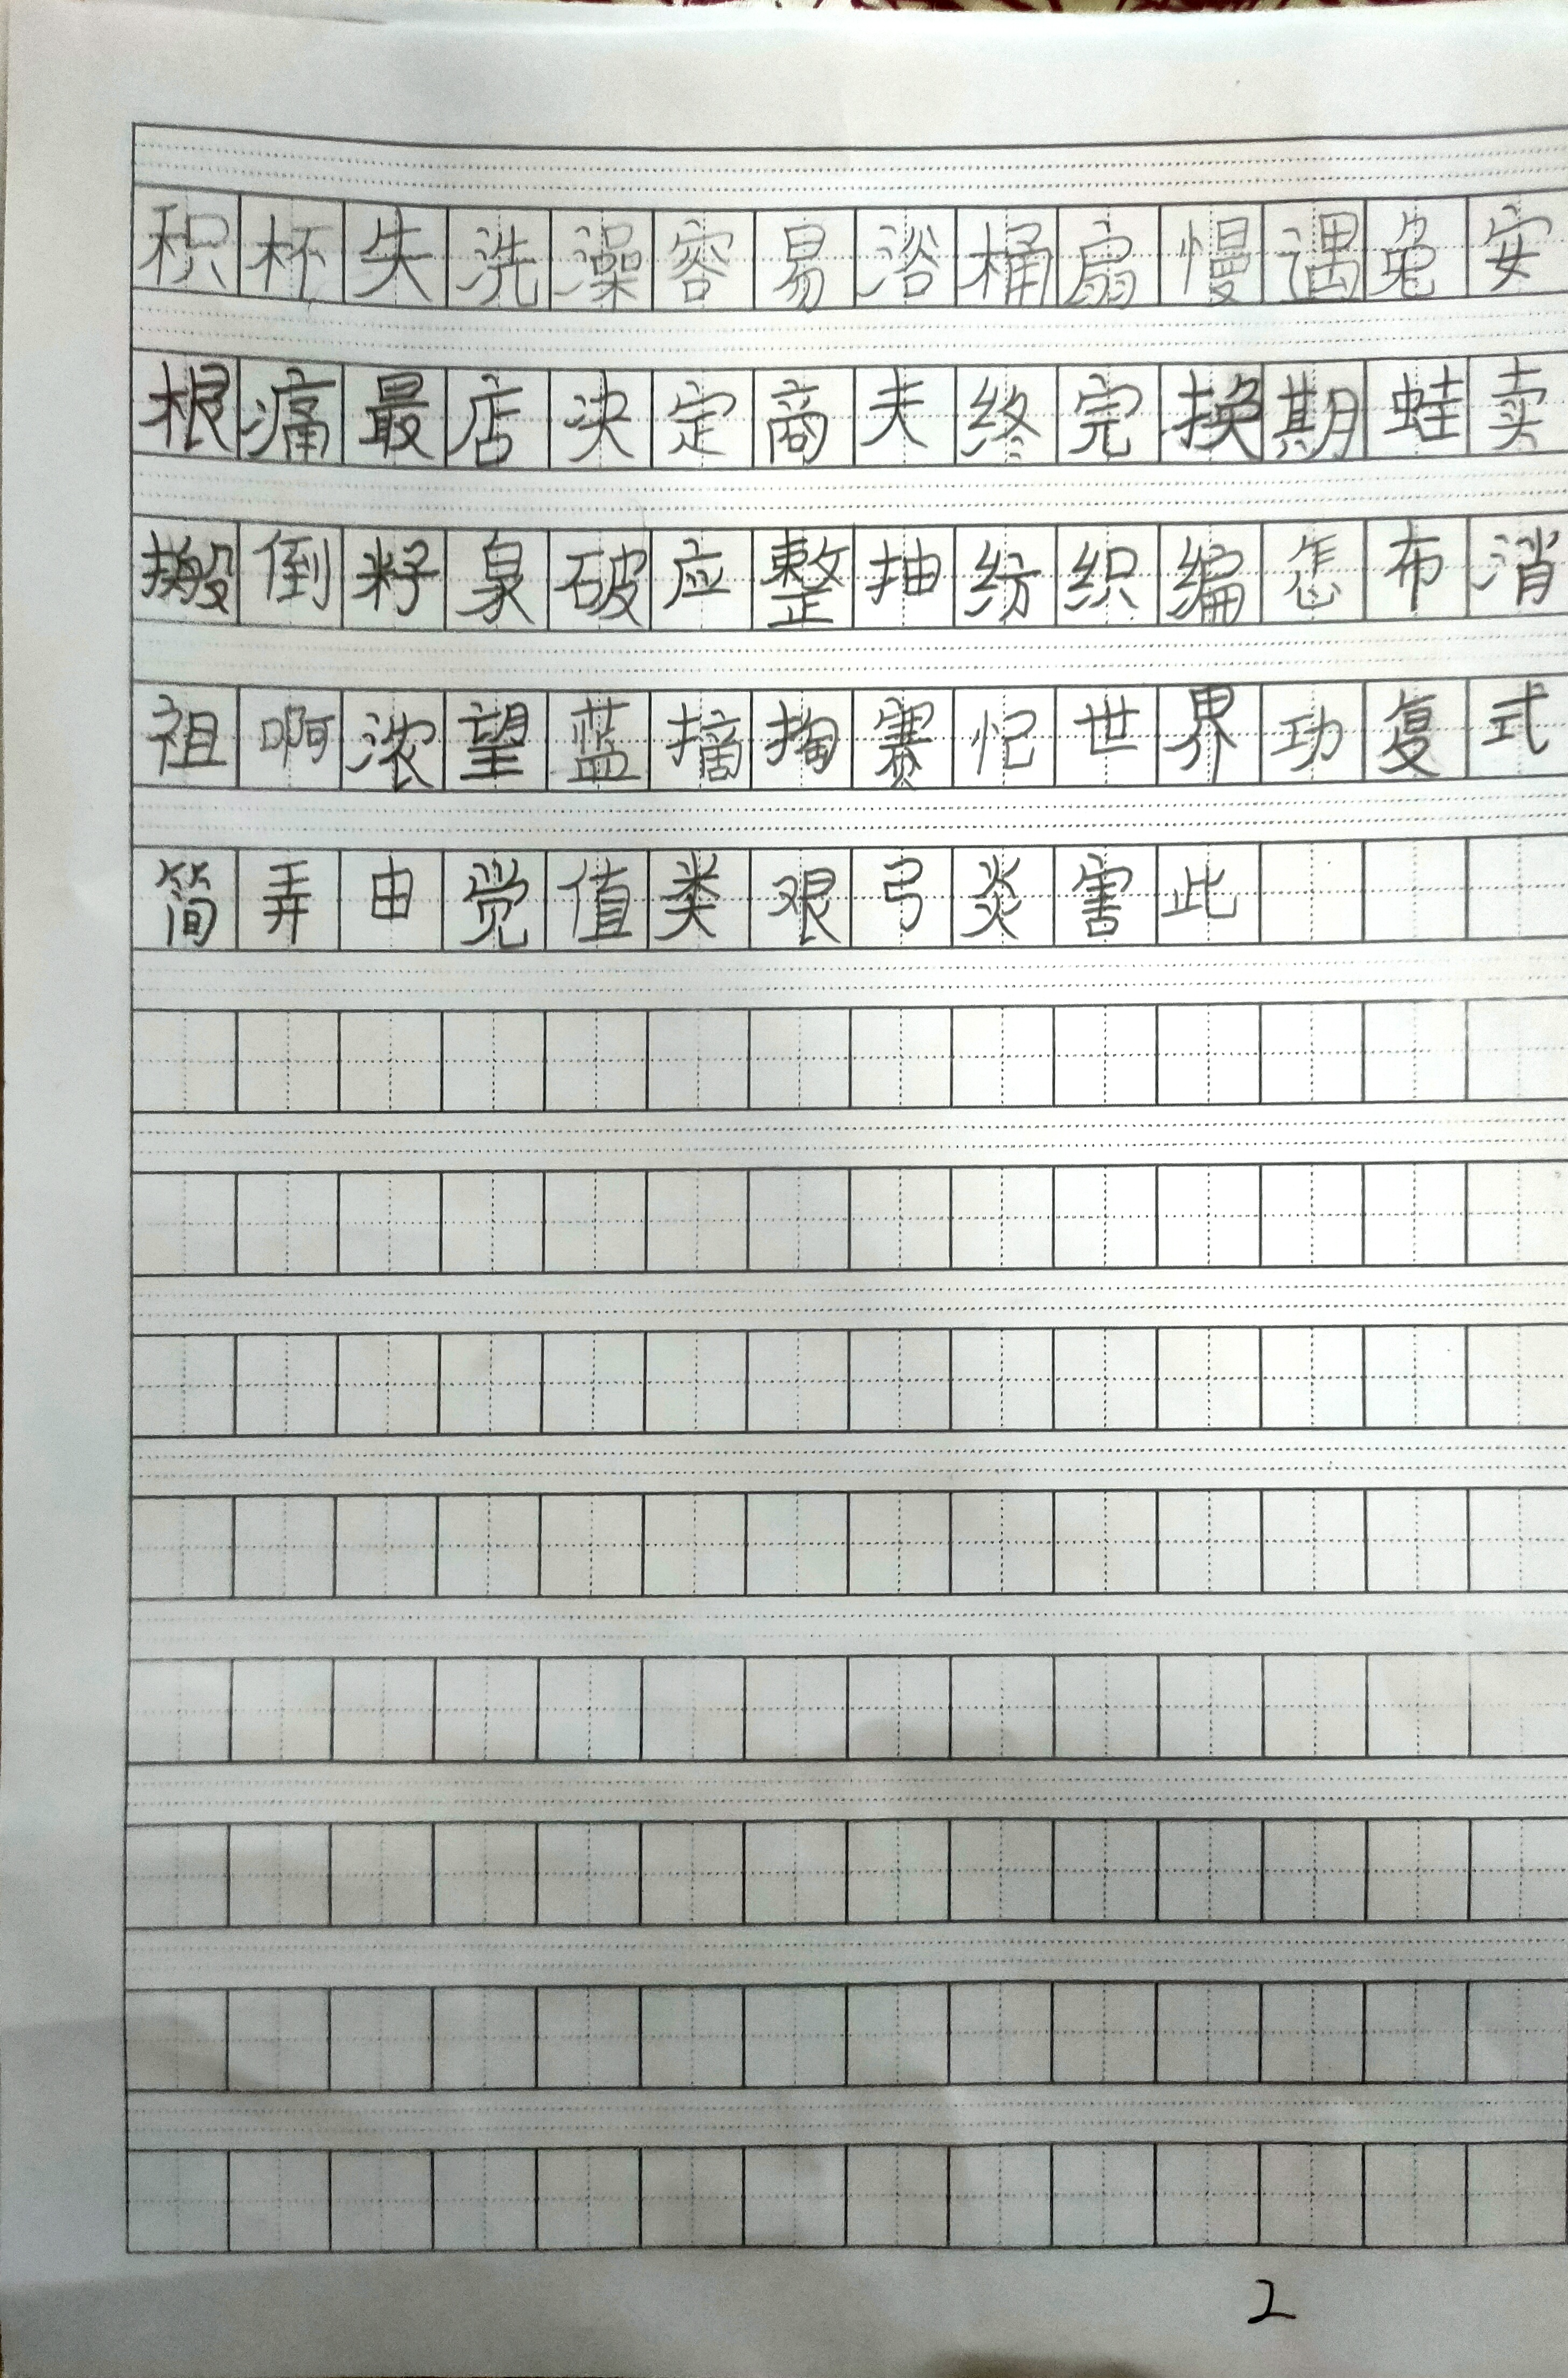 积杯失洗澡容易浴桶扇慢遇兔安
根痛最店决定商夫终完换期蛙卖
搬倒籽泉破应整抽纺织编怎布消
祖啊浓望蓝摘掏赛忆世界功复式
简弄由觉值类艰弓炎害此
2